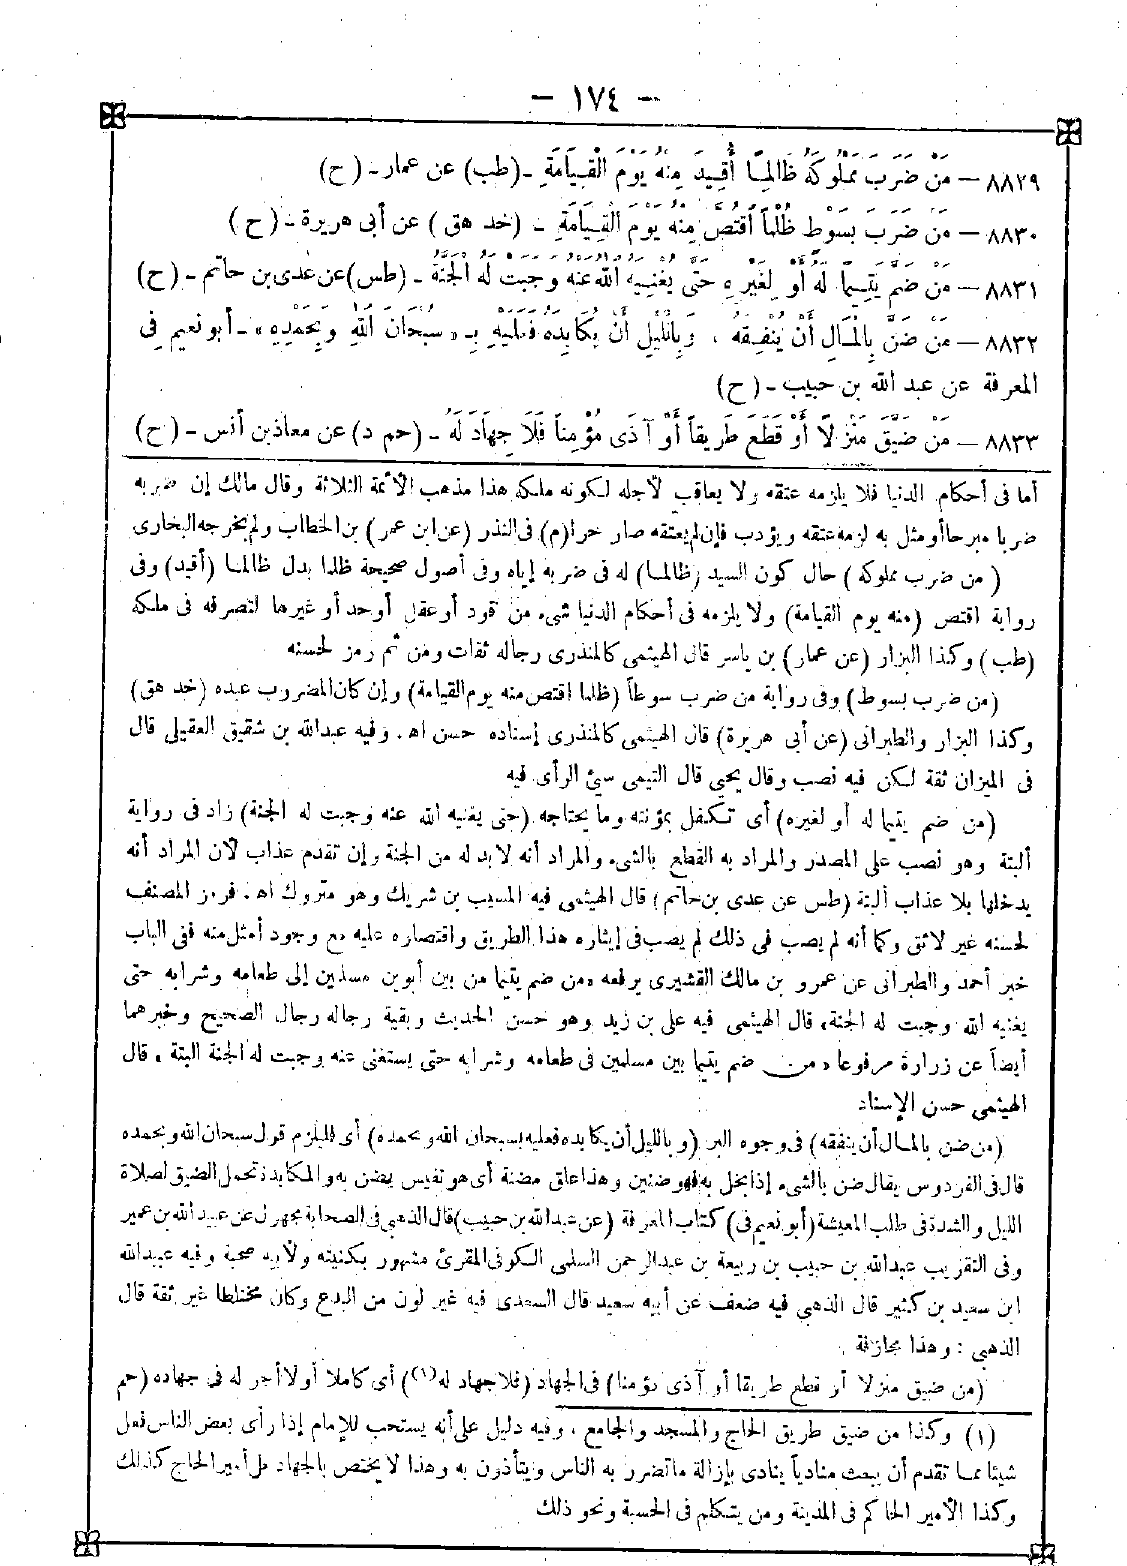 — ١٧٤ —
٨٨٢٩ — مَنْ ضَرَبَ مَمْلُوكَهُ ظَالِمًا أُقِيدَ مِنْهُ يَوْمَ الْقِيَامَةِ - (طب) عن عمار - (ح)
٨٨٣٠ — مَنْ ضَرَبَ بِسَوْطٍ ظُلْمًا اقْتُصَّ مِنْهُ يَوْمَ الْقِيَامَةِ - (خد هق) عن أبى هريرة - (ح)
٨٨٣١ — مَنْ ضَمَّ يَتِيمًا لَهُ أَوْ لِغَيْرِهِ حَتَّى يُغْنِيَهُ اللهُ عَنْهُ وَجَبَتْ لَهُ الْجَنَّةُ - (طس) عن عدى بن حاتم - (ح)
٨٨٣٢ — مَنْ ضَنَّ بِالْمَالِ أَنْ يُنْفِقَهُ ، وَبِاللَّيْلِ أَنْ يُكَابِدَهُ فَعَلَيْهِ بِـ «سُبْحَانَ اللهِ وَبِحَمْدِهِ» - أبو نعيم فى
المعرفة عن عبد الله بن حبيب - (ح)
٨٨٣٣ — مَنْ ضَيَّقَ مَنْزِلًا أَوْ قَطَعَ طَرِيقاً أَوْ آذَى مُؤْمِناً فَلَا جِهَادَ لَهُ - (حم د) عن معاذ بن أنس - (ح)
أما فى أحكام الدنيا فلا يلزمه عتقه ولا يعاقب لأجله لكونه ملكه هذا مذهب الأئمة الثلاثة وقال مالك إن ضربه
ضربا مبرحا أو مثل به لزمه عتقه ويؤدب فإن لم يعتقه صار حرا (م) فى النذر (عن ابن عمر) بن الخطاب ولم يخرجه البخارى
(من ضرب مملوكه) حال كون السيد (ظالما) له فى ضربه إياه وفى أصول صحيحة ظلما بدل ظالما (أقيد) وفى
رواية اقتص (منه يوم القيامة) ولا يلزمه فى أحكام الدنيا شىء من قود أو عقل أوحد أو غيرها لتصرفه فى ملكه
(طب) وكذا البزار (عن عمار) بن ياسر قال الهيثمى كالمنذرى رجاله ثقات ومن ثم رمز لحسنه
(من ضرب بسوط) وفى رواية من ضرب سوطاً (ظلما اقتص منه يوم القيامة) وإن كان المضروب عبده (خد هق)
وكذا البزار والطبرانى (عن أبى هريرة) قال الهيثمى كالمنذرى إسناده حسن اهـ. وفيه عبدالله بن شقيق العقيلى قال
فى الميزان ثقة لكن فيه نصب وقال يحيى قال التيمى سيئ الرأى فيه
(من ضم يتيما له أو لغيره) أى تكفل بمؤنته وما يحتاجه (حتى يغنيه الله عنه وجبت له الجنة) زاد فى رواية
ألبتة وهو نصب على المصدر والمراد به القطع بالشىء والمراد أنه لابد له من الجنة وإن تقدم عذاب لأن المراد أنه
يدخلها بلا عذاب ألبتة (طس عن عدى بن حاتم) قال الهيثمى فيه المسيب بن شريك وهو متروك اهـ. فرمز المصنف
لحسنه غير لائق وكما أنه لم يصب فى ذلك لم يصب فى إيثاره هذا الطريق واقتصاره عليه مع وجود أمثل منه ففى الباب
خبر أحمد والطبرانى عن عمرو بن مالك القشيرى يرفعه «من ضم يتيما من بين أبوين مسلمين إلى طعامه وشرابه حتى
يغنيه الله وجبت له الجنة» قال الهيثمى فيه على بن زيد وهو حسن الحديث وبقية رجاله رجال الصحيح وخبرهما
أيضاً عن زرارة مرفوعا «من ضم يتيما بين مسلمين فى طعامه وشرابه حتى يستغنى عنه وجبت له الجنة البتة» قال
الهيثمى حسن الإسناد
(من ضن بالمال أن ينفقه) فى وجوه البر (وبالليل أن يكابده فعليه بسبحان الله وبحمده) أى فليلزم قول سبحان الله وبحمده
قال فى الفردوس يقال ضن بالشىء إذا بخل به فهو ضنين وهذا علق مضنة أى هو نفيس يضن به والمكابدة تحمل الضيق لصلاة
الليل والشدة فى طلب المعيشة (أبو نعيم فى) كتاب المعرفة (عن عبدالله بن حبيب) قال الذهبى فى الصحابة مجهول عن عبيد الله بن عمير
وفى التقريب عبدالله بن حبيب بن ربيعة بن عبدالرحمن السلمى الكوفى المقرئ مشهور بكنيته ولأبيه صحبة وفيه عبيدالله
ابن سعيد بن كثير قال الذهبى فيه ضعف عن أبيه سعيد قال السعدى فيه غير لون من البدع وكان مختلطا غير ثقة قال
الذهبى : وهذا مجازفة .
(من ضيق منزلا أو قطع طريقا أو آذى مؤمنا) فى الجهاد (فلا جهاد له (١)) أى كاملا أو لا أجر له فى جهاده (حم
(١) وكذا من ضيق طريق الحاج والمسجد والجامع ، وفيه دليل على أنه يستحب للإمام إذا رأى بعض الناس فعل
شيئا مما تقدم أن يبعث مناديا ينادى بإزالة ما تضرر به الناس ويتأذون به وهذا لا يختص بالجهاد بل أمير الحاج كذلك
وكذا الأمير الحاكم فى المدينة ومن يتكلم فى الحسبة ونحو ذلك